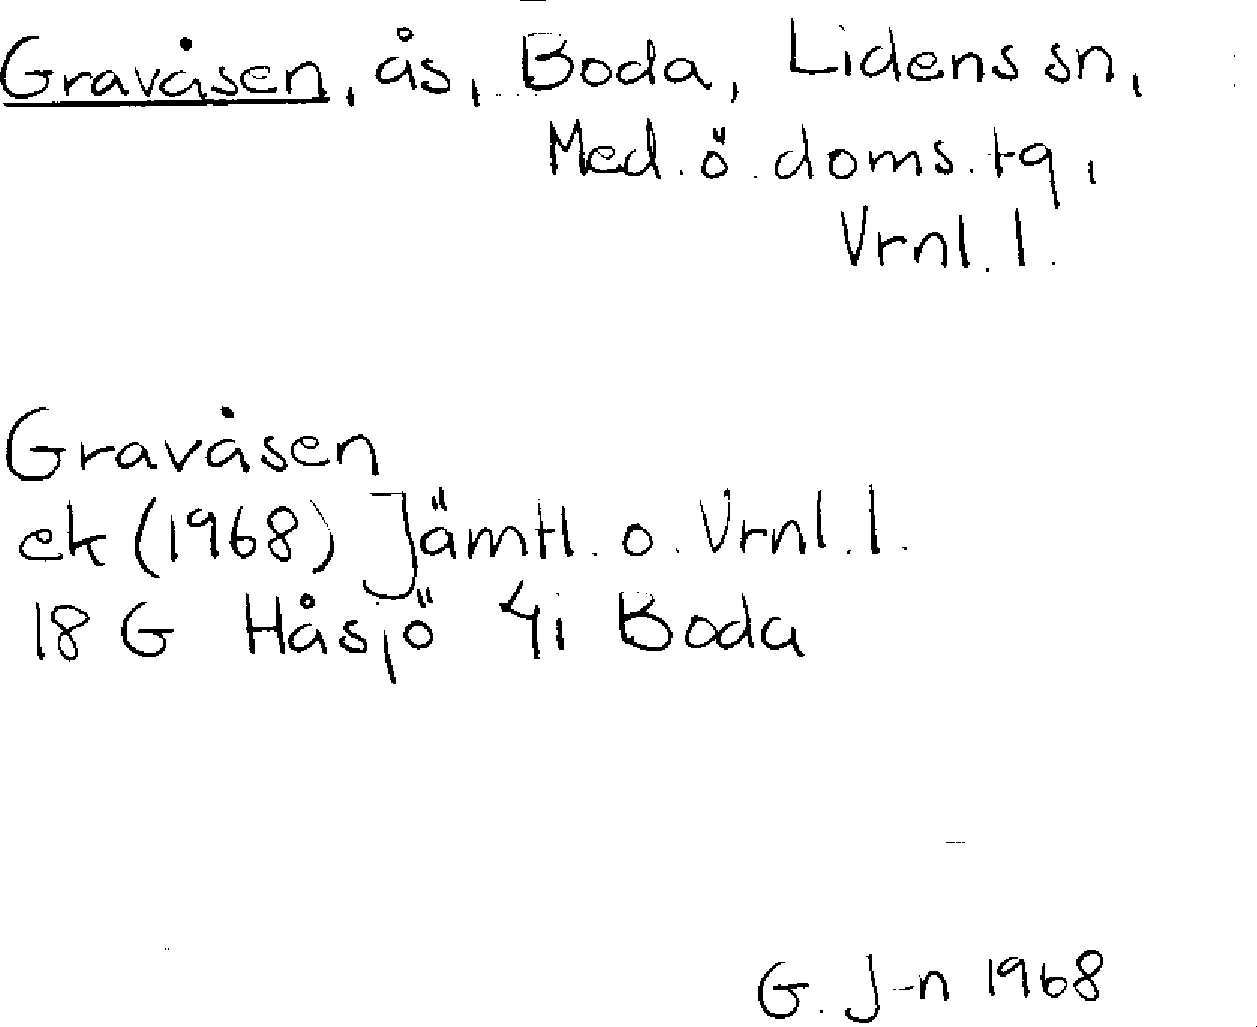 Gravåsen, ås, Boda, Lidens sn,
Med. ö. doms. tg,
Vrnl. l.
Gravåsen
ek (1968) Jämtl. o. Vrnl. l.
18 G Håsjö 4i Boda
G. J-n 1968